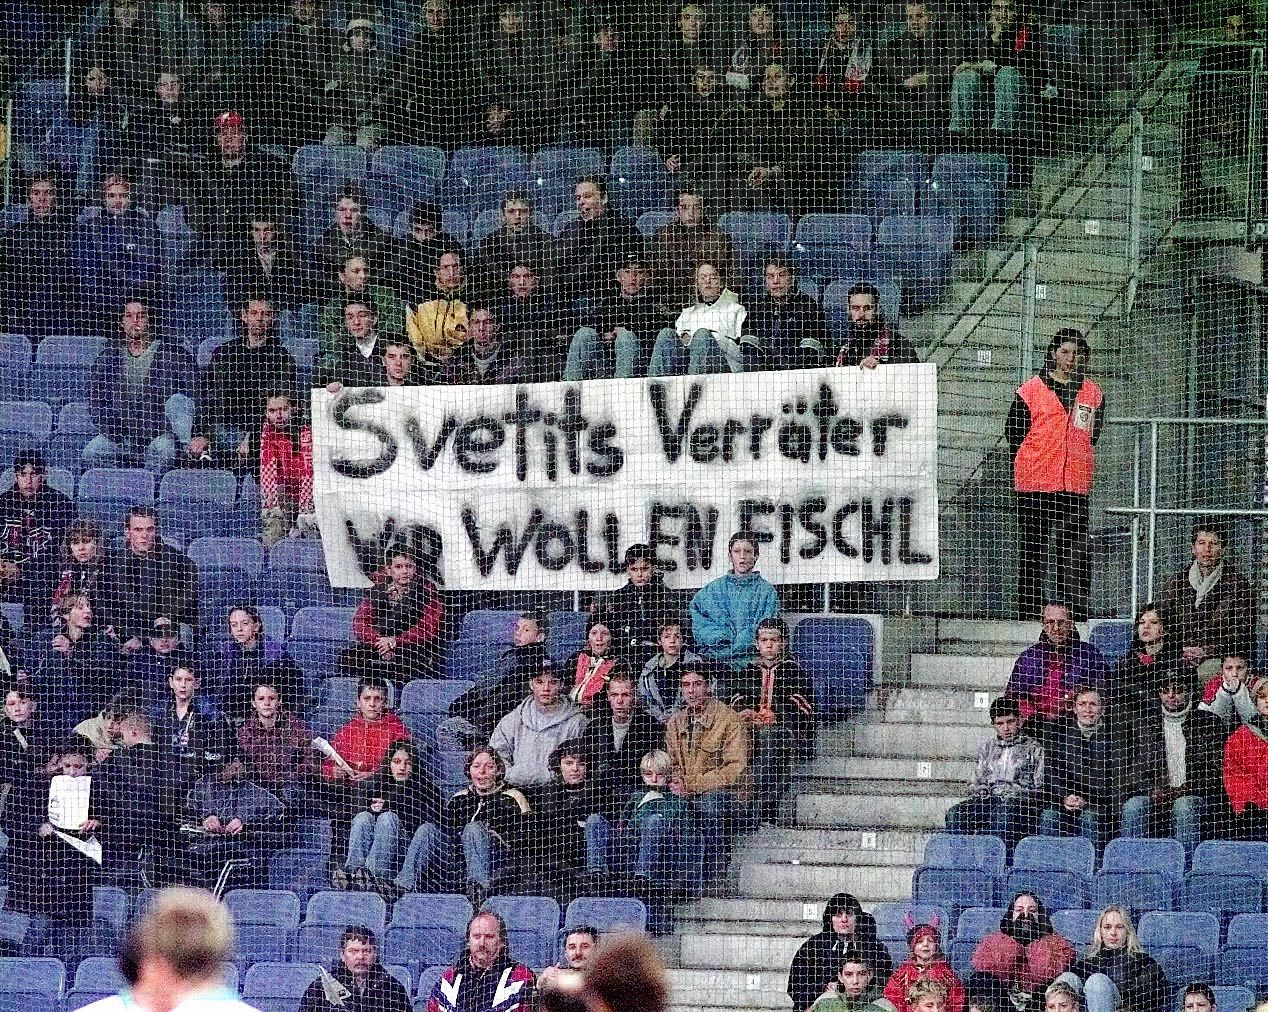 Svetits Verräter
WIR WOLLEN FISCHL